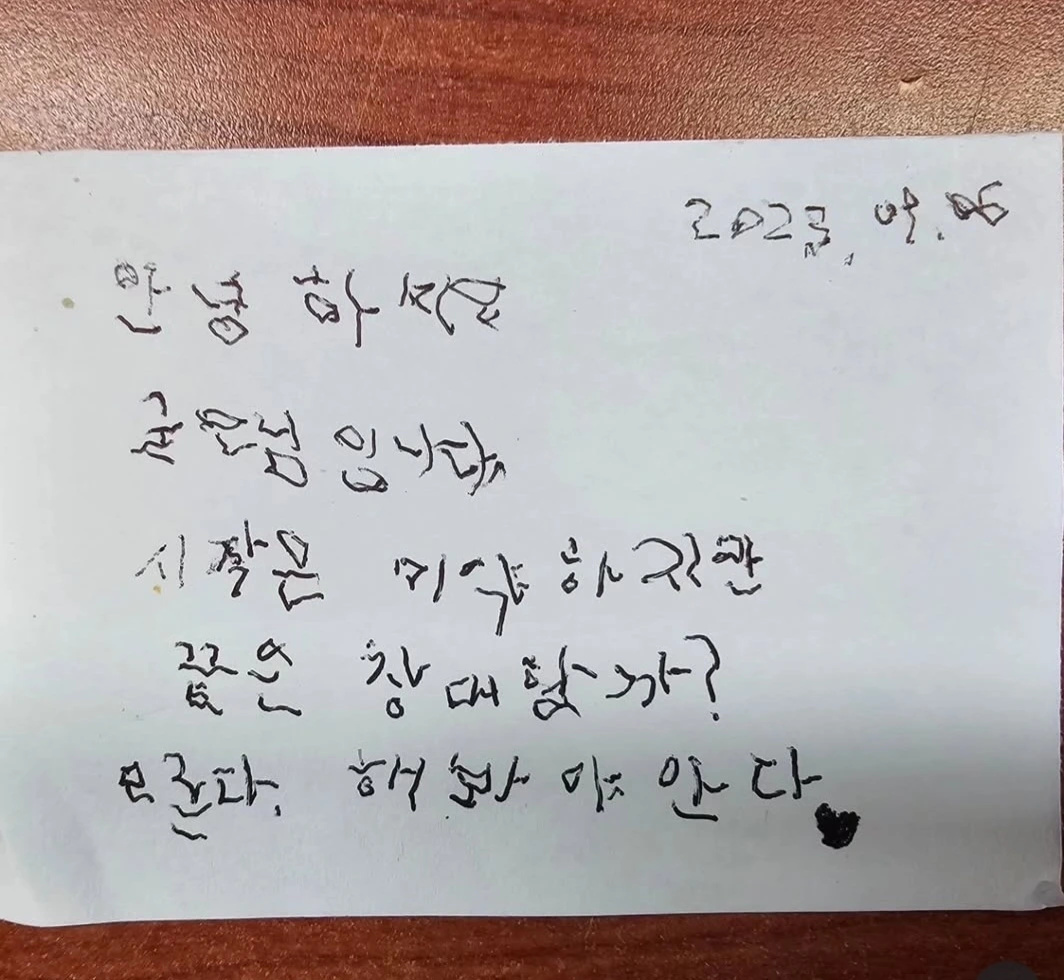 2023. 09.06
안녕 하세요
입니다
시작은 미약 하지만
끝은 창대할까?
모른다. 해봐야 안다